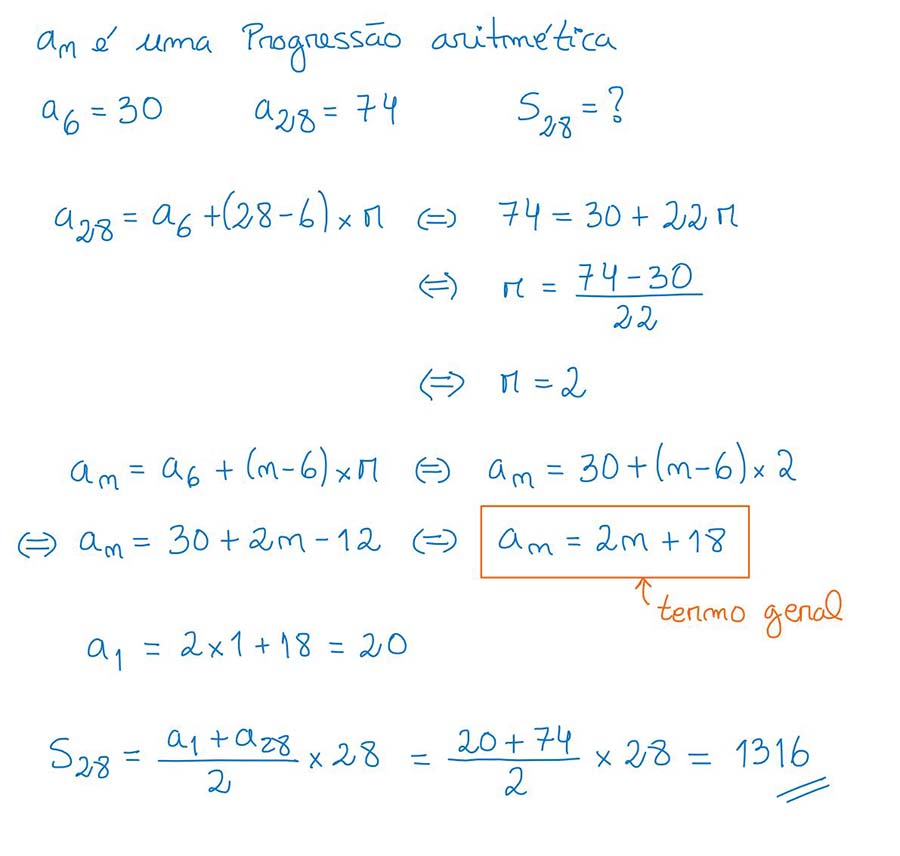 aₙ é uma Progressão aritmética
a₆ = 30 a₂₈ = 74 S₂₈ = ?
a₂₈ = a₆ + (28 - 6) × r ⇔ 74 = 30 + 22r
⇔ r = (74 - 30)/22
⇔ r = 2
aₙ = a₆ + (n - 6) × r ⇔ aₙ = 30 + (n - 6) × 2
⇔ aₙ = 30 + 2n - 12 ⇔ aₙ = 2n + 18
↑ termo geral
a₁ = 2 × 1 + 18 = 20
S₂₈ = (a₁ + a₂₈)/2 × 28 = (20 + 74)/2 × 28 = 1316